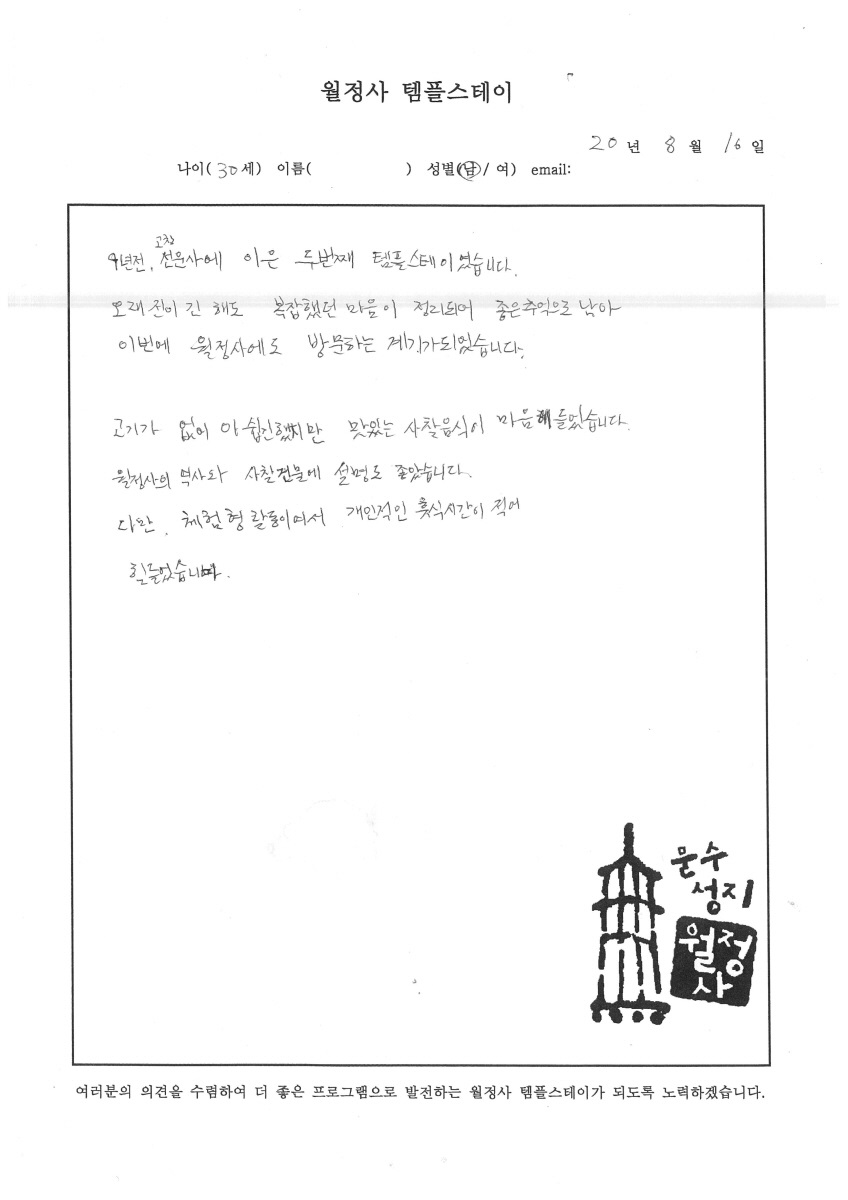 월정사 템플스테이
20년 8월 16일
나이(30세) 이름( ) 성별(남/여) email:
고창
9년전, 선운사에 이은 두번째 템플스테이였습니다.
오래전이긴 해도 복잡했던 마음이 정리되며 좋은추억으로 남아
이번에 월정사에도 방문하는 계기가되었습니다.
고기가 없어 아쉽긴했지만 맛있는 사찰음식이 마음에들었습니다.
월정사의 역사와 사찰건물에 설명도 좋았습니다.
다만, 체험형활동이여서 개인적인 휴식시간이 적어
힘들었습니다.
문수
성지
월정
사
여러분의 의견을 수렴하여 더 좋은 프로그램으로 발전하는 월정사 템플스테이가 되도록 노력하겠습니다.